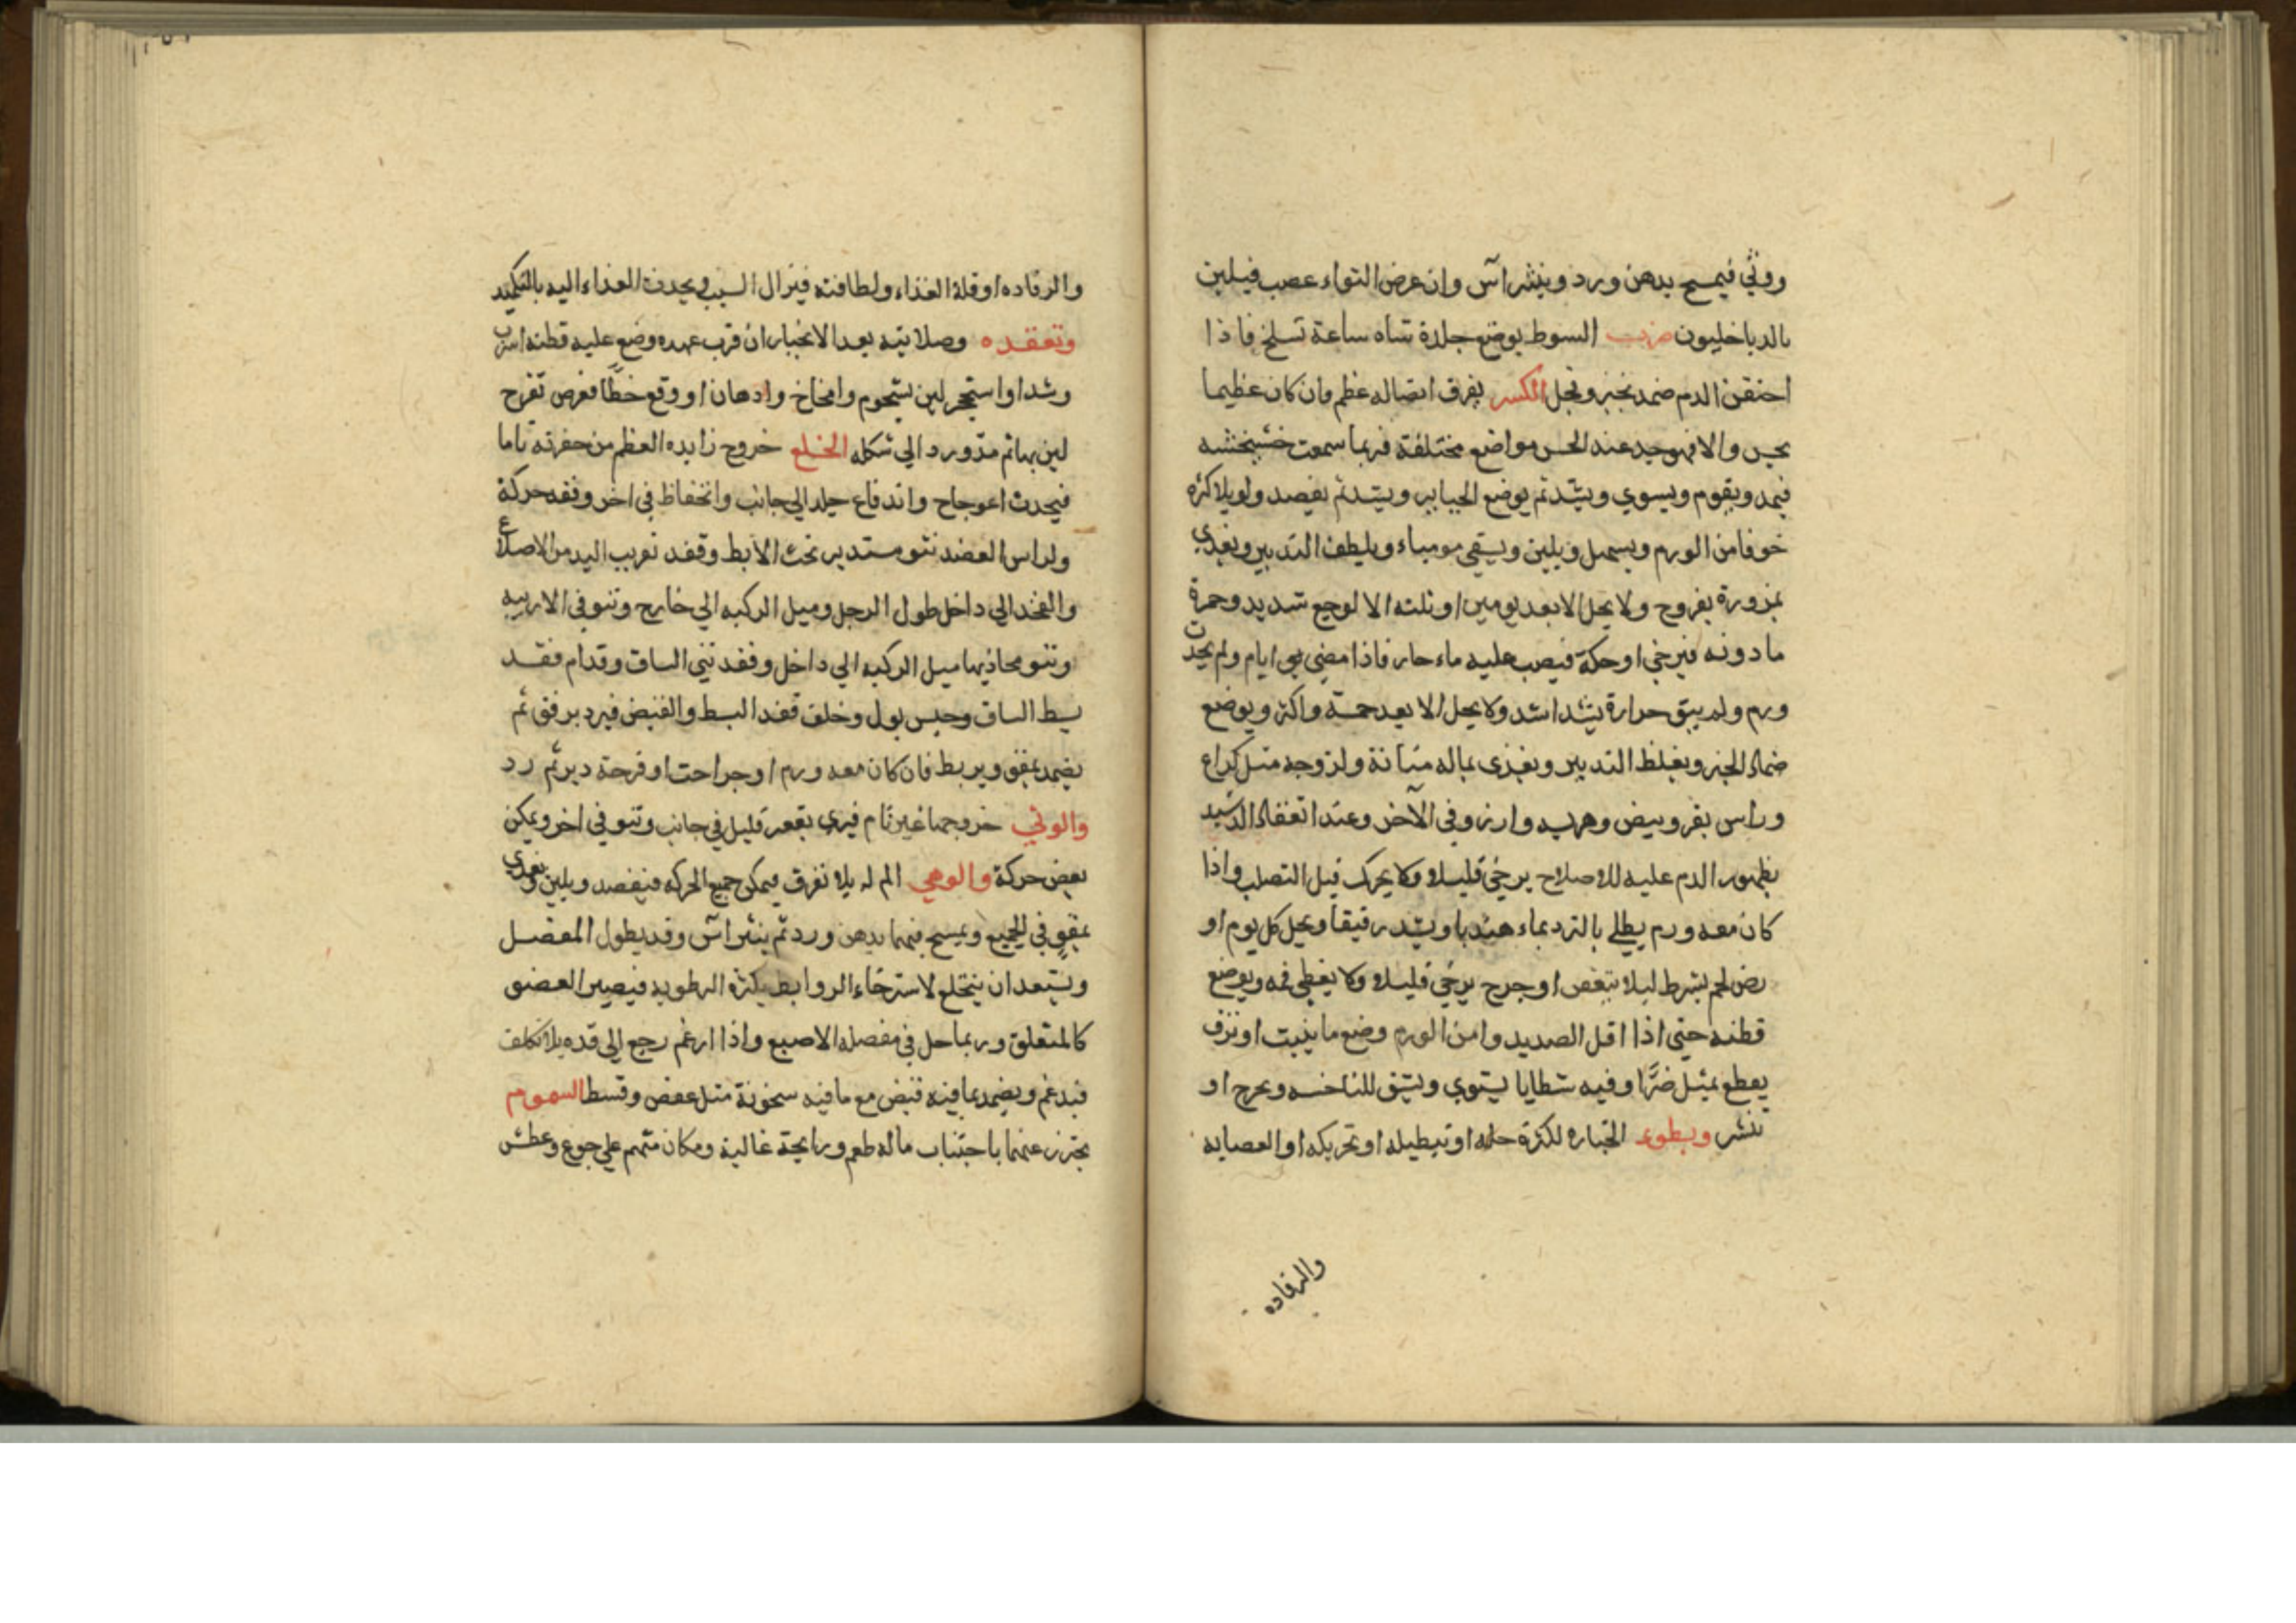 ووثي فيمسح بدهن ورد وينثر آس وان عرض التواء عصب فيلين
بالدياخليون ضرب السوط يوضع جلدة شاه ساعة تسلخ فاذا
احتقن الدم ضمد بخبز وفجل الكسر يفرق اتصاله عظم فان كان عظيما
يحس والا فهو يجد عند الحس مواضع مختلفة فربما سمعت خشخشه
فيمد ويقوم ويسوي ويشد ثم يوضع الجباير ويشد ثم يفصد ولو بلا كثره
خوفا من الورم ويسهل ويلين ويسقي مومياء ويلطف التدبير ويغدي
بمزورة بفروج ولا يحل الا بعد يومين او ثلثه الا لوجع شديد وحمرة
ما دونه فيرخي او حكة فيصب عليه ماء حار فاذا مضي ايام ولم يحدث
ورم ولم يبق حرارة يشد اشد ولا يحل الا بعد خمسة واكثر ويوضع
ضماد الجبر ويغلظ التدبير ويغذى بماله متانة ولزوجه مثل كراع
وراس بقر وبيض وهريسه وارز وفي الآخر وعند انعقاد الدشبد
بظهور الدم عليه للاصلاح يرخي قليلا ولا يحرك قبل التصلب واذا
كان معه ورم يطلي بالترد بماء هندبا ويشد رقيقا ويحل كل يوم او
رض لحم يشرط ليلا يتعفن او جرح يرخي قليلا ولا يغطي فمه ويوضع
قطنه حتي اذا اقل الصديد وامن الورم وضع ما ينبت او نزف
يقطع بمثل ضرًا وفيه شظايا يستوي ويشق للناخسه ويخرج او
ينشر وبطوء انجباره لكثرة حله او تبطيله او تحريكه او العصابه
والرفاده
والرفاده او قلة الغذاء ولطافته فيزال السبب ويجذب الغذاء اليه بالتكميد
وتعقده وصلابته بعد الانجبار ان قرب عهده وضع عليه قطنه اسرب
وشد او استحجر لين بشحوم وامخاخ وادهان او وقع خطًا فعرض تفرج
لين بها ثم مدّ ورد الي شكله الخلع خروج زايده العظم من حفرته تاما
فيحدث اعوجاج واندفاع جلد الي جانب وانخفاظ في اخر وفقد حركة
ولراس العضد نتو مستدير تحت الابط وفقد تقريب اليد من الاضلاع
والفخد الي داخل طول الرجل وميل الركبه الي خارج ونتو في الاربيه
ونتو محاذيها ميل الركبه الي داخل وفقد ثني الساق وقدام فقد
بسط الساق وحبس بول وخلف فقد البسط والقبض فيرد برفق ثم
يضمد بمقق ويربط فان كان معه ورم او جراحت او قرحة دبر ثم رد
والوثي خروجها غير تام فيري تقعر قليل في جانب ونتو في اخر ويمكن
بعض حركة والوهي الم له بلا تفرق فيمكن جميع الحركه فيفصد ويلين ويغدي
بمقو في الجميع ويمسح فيهما بدهن ورد ثم ينثر آس وقد يطول المفصل
ويستعد ان ينخلع لاسترخاء الروابط بكثرة الرطوبه فيصير العضو
كالمتعلق وربما دخل في مفصله الاصبع واذا ادغم رجع الي قده بلا تكلف
فيدغم ويضمد بما فيه قبض مع ما فيه سخونة مثل عفص وقسط السموم
يحترز عنها باجتناب ما له طعم ورايحة غالبة ومكان متهم علي جوع وعطش